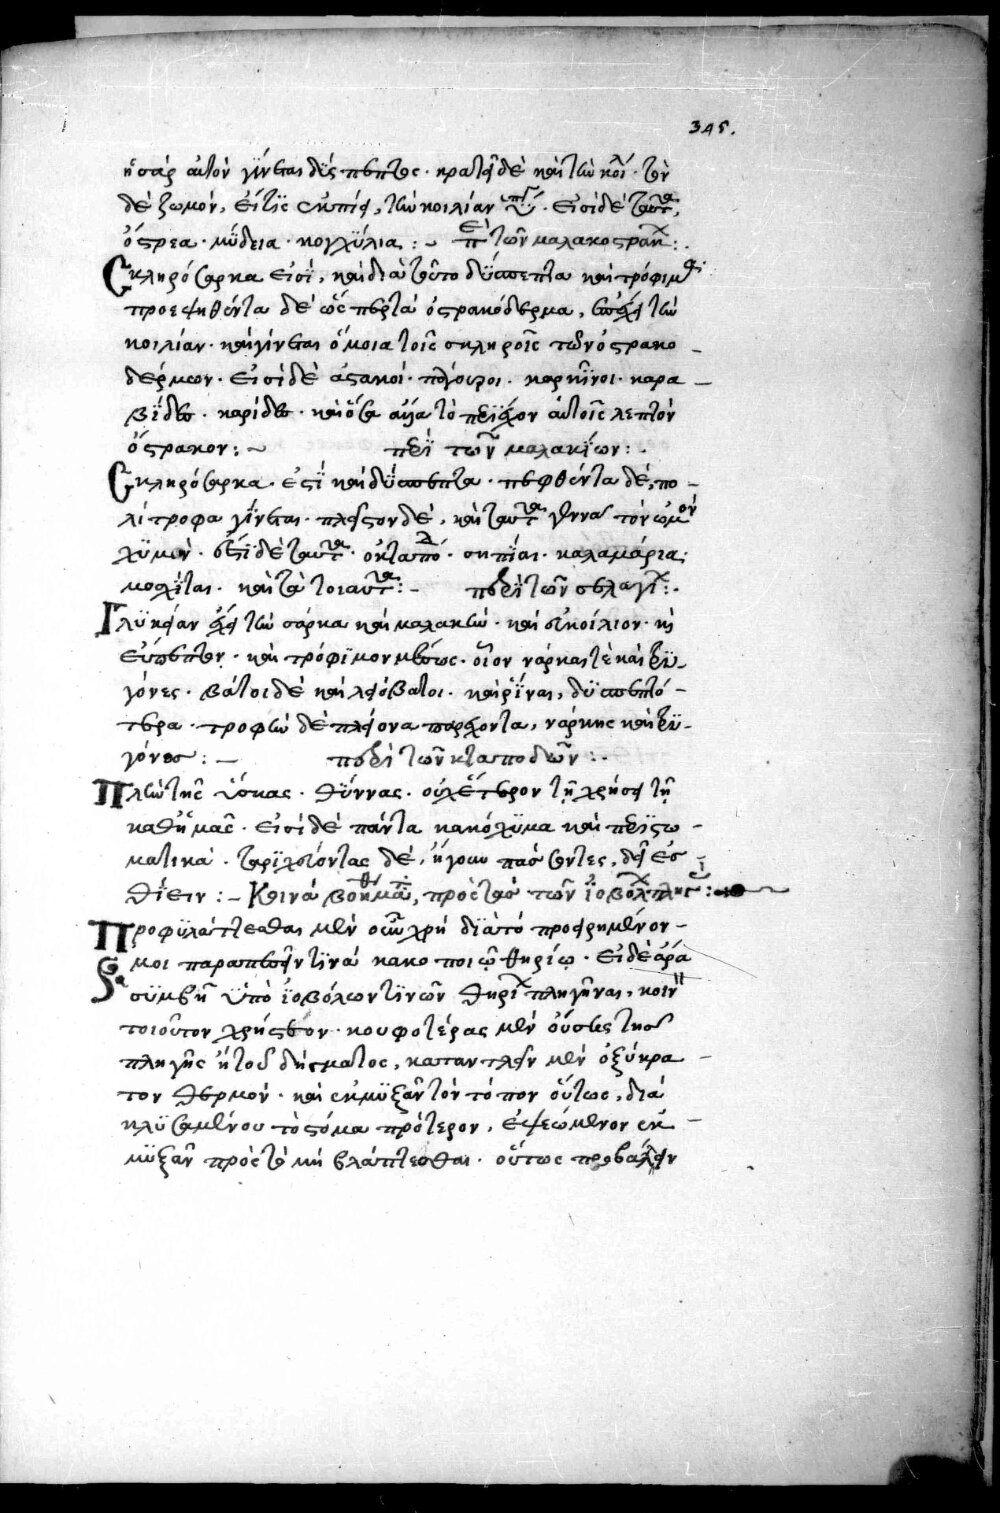 345.
ἡ σὰρξ αὐτῶν γίνεται δύσπεπτος · κρατεῖ δὲ καὶ τὴν κοιλ · τὸν
δὲ ζωμὸν, εἴ τις ἐκπίῃ, τὴν κοιλίαν · εἰσὶ δὲ ταῦτα,
ὄστρεα · μύδεια · κογχύλια : ~ περὶ τῶν μαλακοστράκ :.
Σκληρόσαρκα εἰσὶ, καὶ διὰ τοῦτο δύσπεπτα καὶ τρόφιμα·
προεψηθέντα δὲ ὥσπερ τὰ ὀστρακόδερμα, ἐπέχει τὴν
κοιλίαν · καὶ γίνεται ὅμοια τοῖς σκληροῖς τῶν ὀστρακο –
δέρμων · εἰσὶ δὲ ἀστακοί · πάγουροι · καρκῖνοι · καρα –
βίδες · καρίδες · καὶ ὅσα ἄλλα τὸ περιέχον αὐτοῖς λεπτὸν
ὄστρακον : ~ περὶ τῶν μαλακίων : .
Σκληρόσαρκα · ἐστὶ καὶ δύσπεπτα · πεφθέντα δὲ, πο –
λύτροφα γίνεται · πλεῖστον δὲ, καὶ ταῦτα γεννᾶ τὸν ὠμὸν
χυμόν · ἐστὶ δὲ ταῦτα · ὀκταποδ · σηπίαι · καλαμάρια·
μοσχίται · καὶ τὰ τοιαῦτα : – περὶ τῶν σελαχί :.
Γλυκεῖαν ἔχει τὴν σάρκα καὶ μαλακὴν · καὶ εὐκοίλιον · καὶ
εὔπεπτον · καὶ τρόφιμον μέσως · οἷον νάρκαι τὲ καὶ τρυ –
γόνες · βάτοι δὲ καὶ λειόβατοι · καὶ ῥίναι, δυσπεπτό –
τερα · τροφὴν δὲ πλείονα παρέχοντα, νάρκης καὶ τρυ –
γόνος : – περὶ τῶν κταποδων : .
Πλὴν τῆς ὕσκας · θύννας · οὐχ ἕτερον τῇ χρήσει τῇ
καθ' ἡμᾶς · εἰσὶ δὲ πάντα κακόχυμα καὶ περισσω –
ματικά · ταριχεύοντας δὲ, ἤγουν παστώντες, δεῖ ἐσ
θίειν : – Κοινὰ βοηθήματα, πρὸς τὰς τῶν ἰοβόλ πληγ :
Προφυλάττεσθαι μὲν οὖν χρὴ διὰ τὸ προειρημένον –
μοι παραπεσεῖν τινὰ κακοποιῷ θηρίῳ · εἰ δὲ ἄρα
συμβῇ ὑπὸ ἰοβόλων τινῶν θηρί πληγῆναι, κοινῇ
τοιοῦτον χρήστεον · κουφοτέρας μὲν οὔσης τῆς
πληγῆς ἢ τοῦ δήγματος, καταντλεῖν μὲν ὀξύκρα –
τον θερμόν · καὶ ἐκμυζᾶν τὸν τόπον οὕτως, δια
κλυσαμένου τὸ στόμα πρότερον, ἐψεώμενον ἐκ –
μυζᾶν πρὸς τὸ μὴ βλάπτεσθαι · οὕτως προβάλλειν